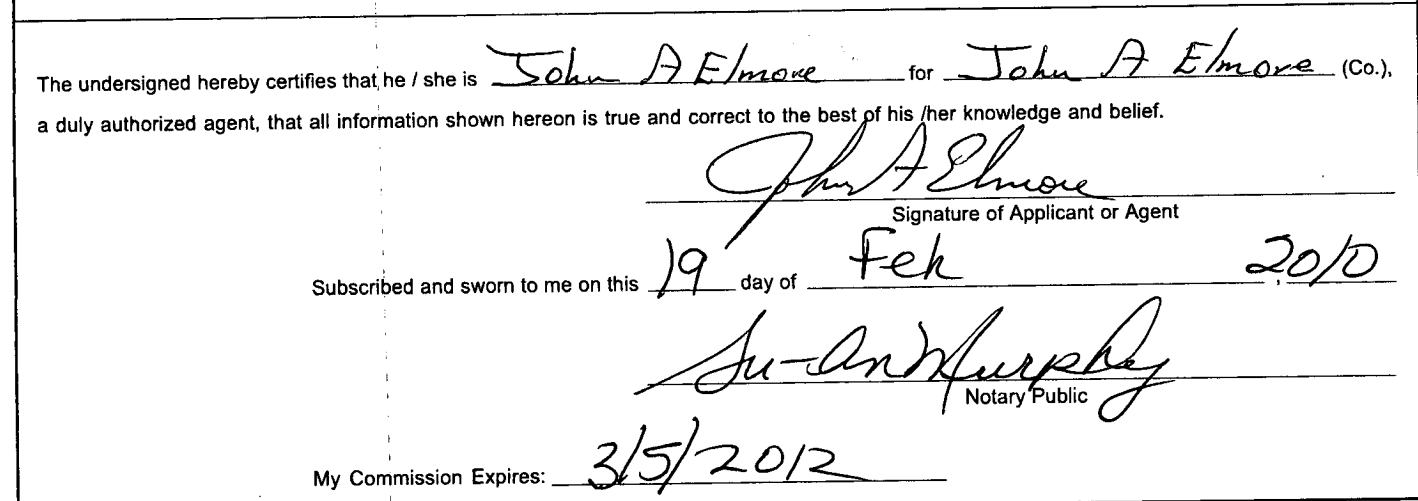 The undersigned hereby certifies that he / she is John A Elmore for John A Elmore (Co.),
a duly authorized agent, that all information shown hereon is true and correct to the best of his /her knowledge and belief.
John A Elmore
Signature of Applicant or Agent
Subscribed and sworn to me on this 19 day of Feb, 2010
Su-An Murphy
Notary Public
My Commission Expires: 3/5/2012